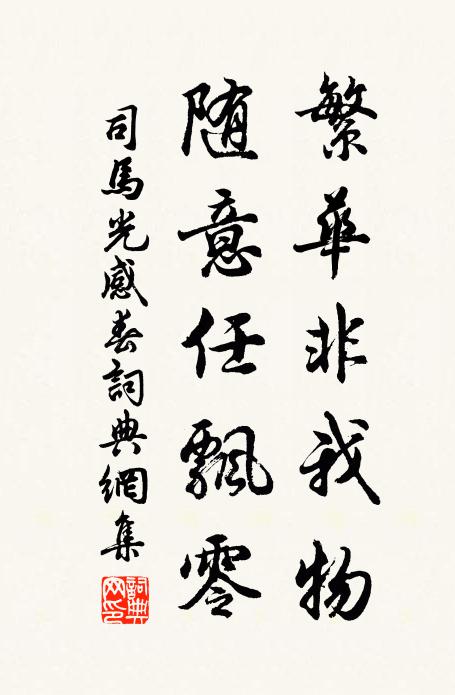 繁華非我物
随意任飄零
司馬光感春詞典網集
詞典网印